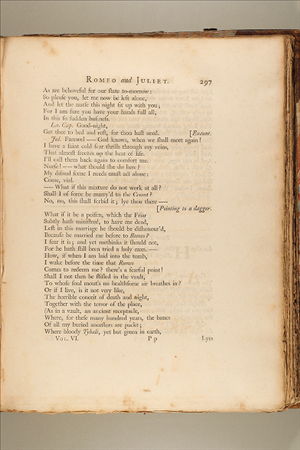 ROMEO and JULIET. 297
As are behoveful for our state to-morrow:
So please you, let me now be left alone,
And let the nurse this night sit up with you;
For I am sure you have your hands full all,
In this so sudden business.
La. Cap. Good-night,
Get thee to bed and rest, for thou hast need. [Exeunt.
Jul. Farewel —— God knows, when we shall meet again!
I have a faint cold fear thrills through my veins,
That almost freezes up the heat of life.
I'll call them back again to comfort me.
Nurse! —— what should she do here?
My dismal scene I needs must act alone:
Come, vial.
—— What if this mixture do not work at all?
Shall I of force be marry'd to the Count?
No, no, this shall forbid it; lye thou there ——
[Pointing to a dagger.
What if it be a poison, which the Friar
Subtly hath ministred, to have me dead,
Left in this marriage he should be dishonour'd,
Because he married me before to Romeo?
I fear it is; and yet methinks it should not,
For he hath still been tried a holy man. ——
How, if when I am laid into the tomb,
I wake before the time that Romeo
Comes to redeem me? there's a fearful point!
Shall I not then be stifled in the vault,
To whose foul mouth no healthsome air breathes in?
Or if I live, is it not very like,
The horrible conceit of death and night,
Together with the terror of the place,
(As in a vault, an ancient receptacle,
Where, for these many hundred years, the bones
Of all my buried ancestors are packt;
Where bloody Tybalt, yet but green in earth,
VOL. VI. P p Lyes